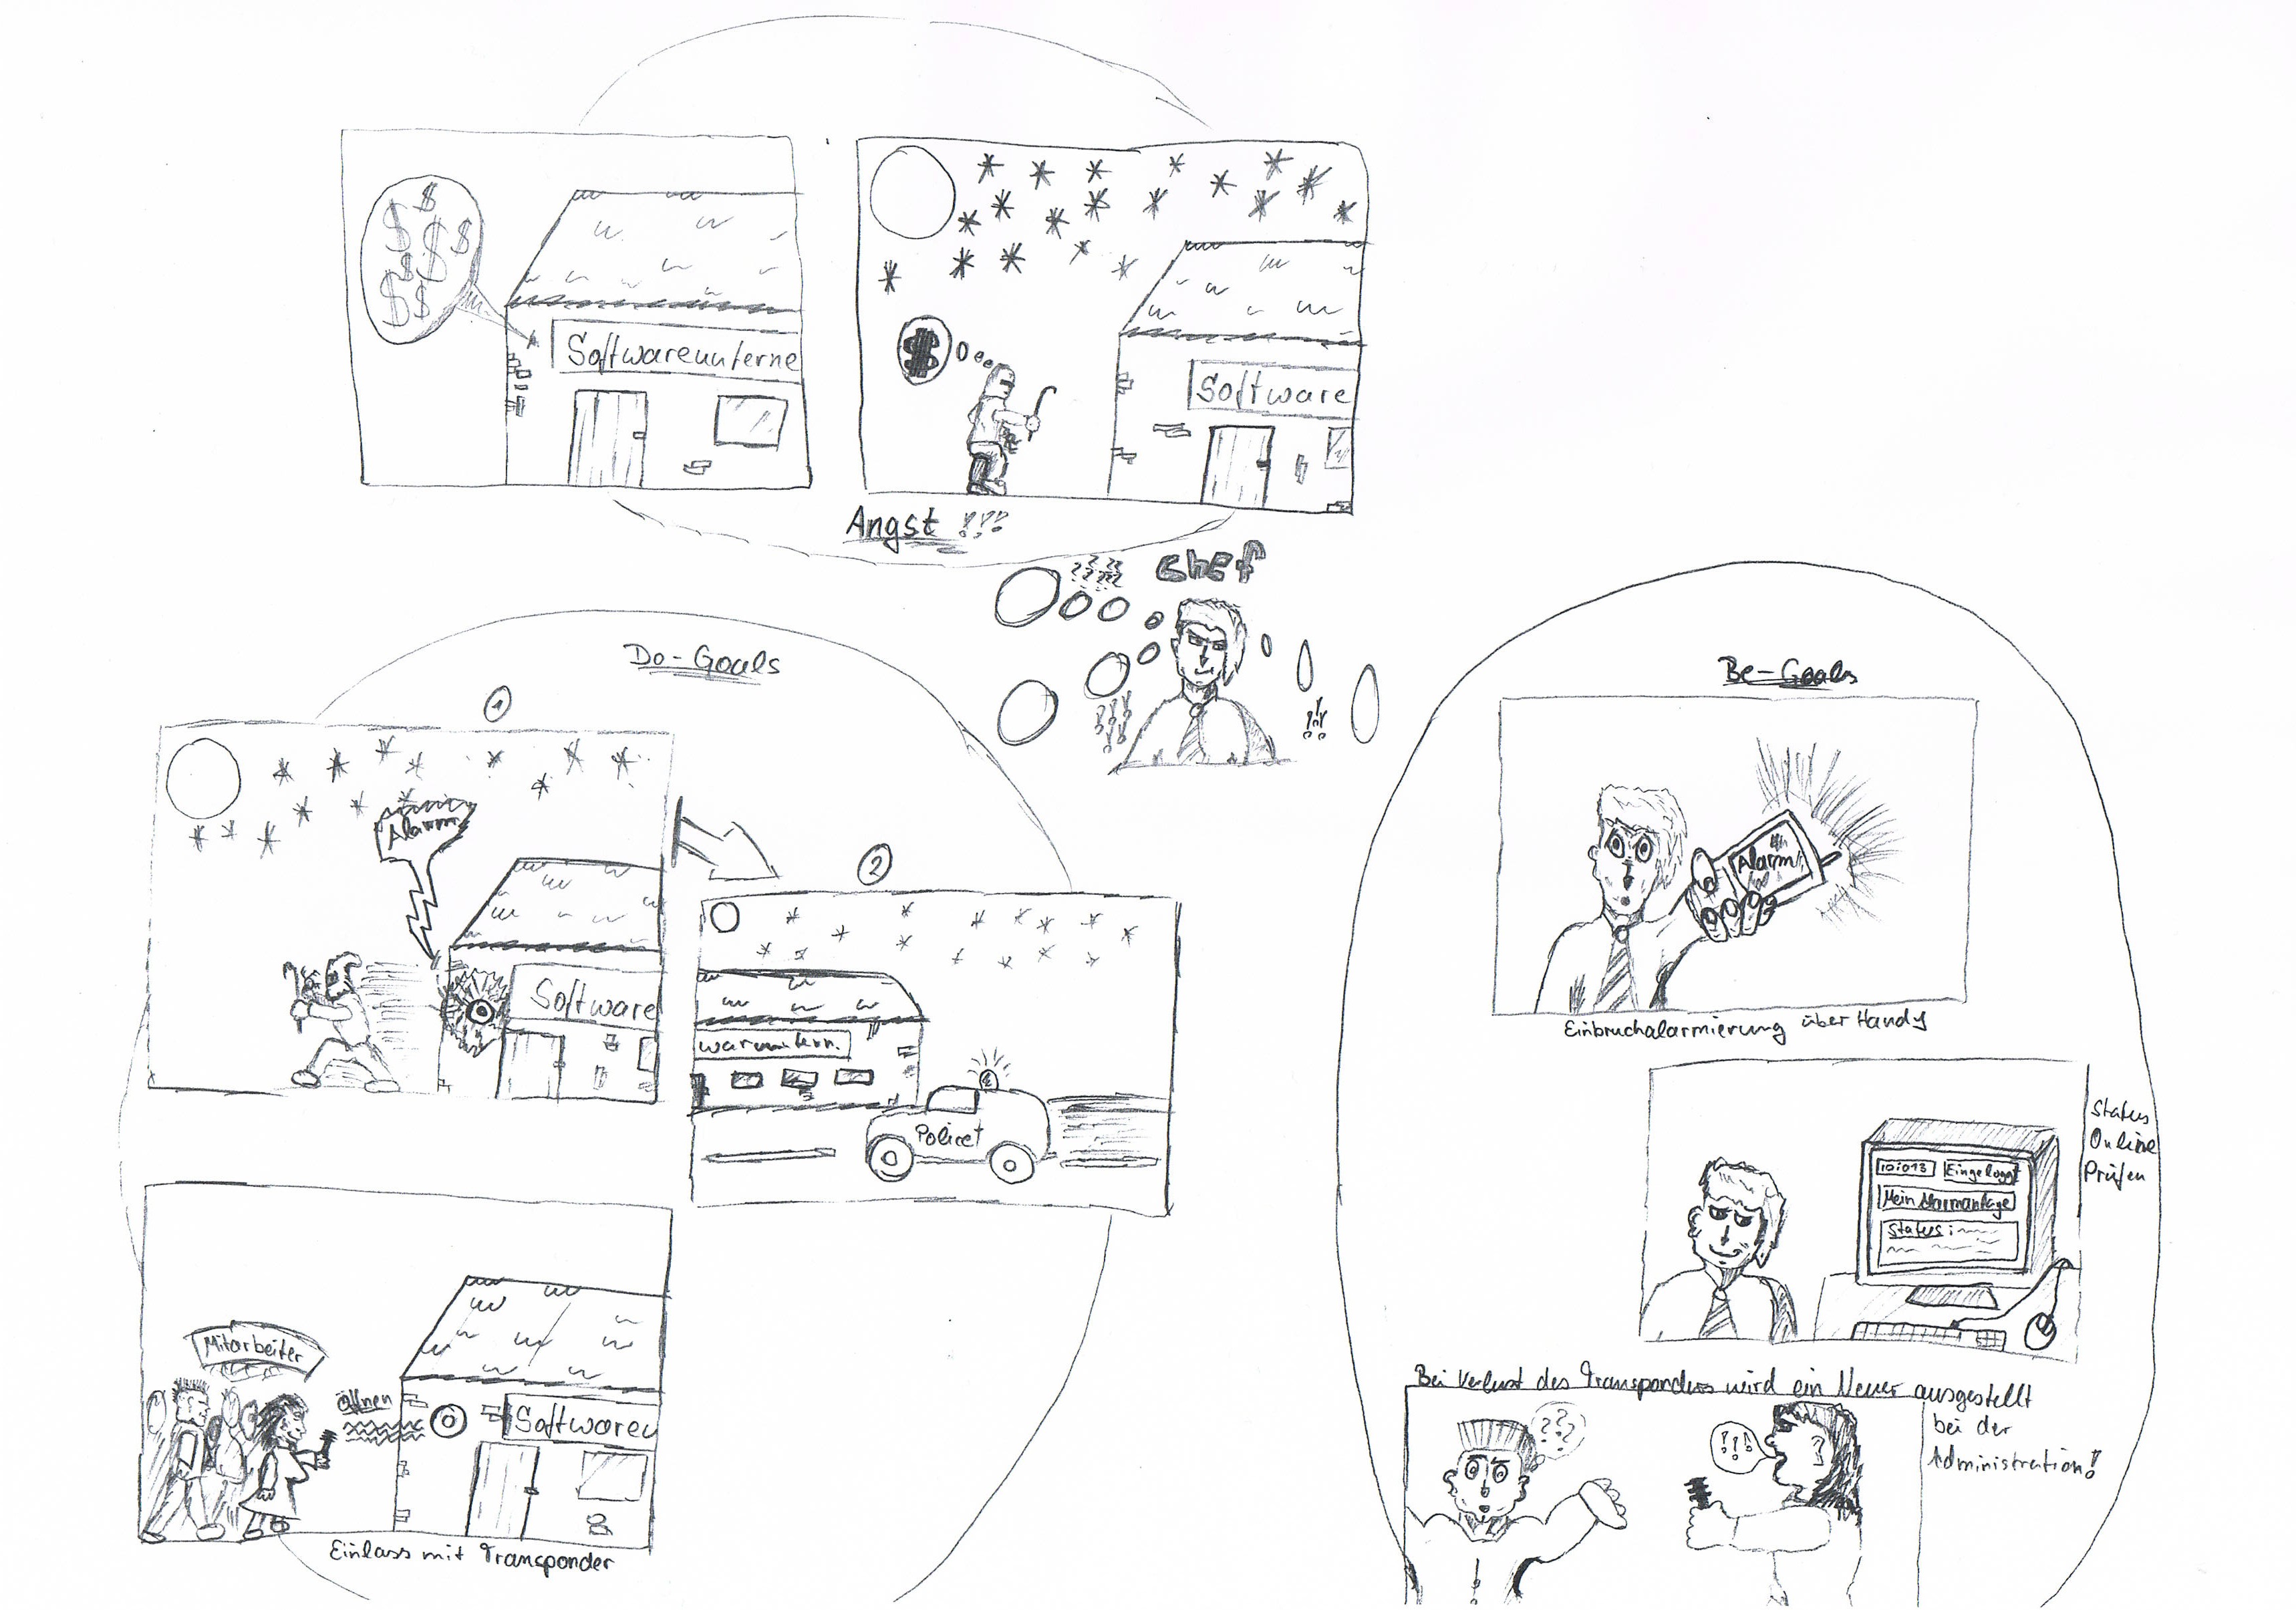 $ $ $ $ $ $ $
Softwareunterne
$
Software
Angst !!!
Chef
Do-Goals
1
Alarm
Software
2
waruntern.
Police
Mitarbeiter
öffnen
Softwareu
Einlass mit Transponder
Be-Goals
Alarm
Einbruchalarmierung über Handy
Status
Online
Prüfen
Eingeloggt
Mein Alarmanlage
Status:
Bei Verlust des Transponders wird ein Neuer ausgestellt
bei der
Administration!
???
!!!